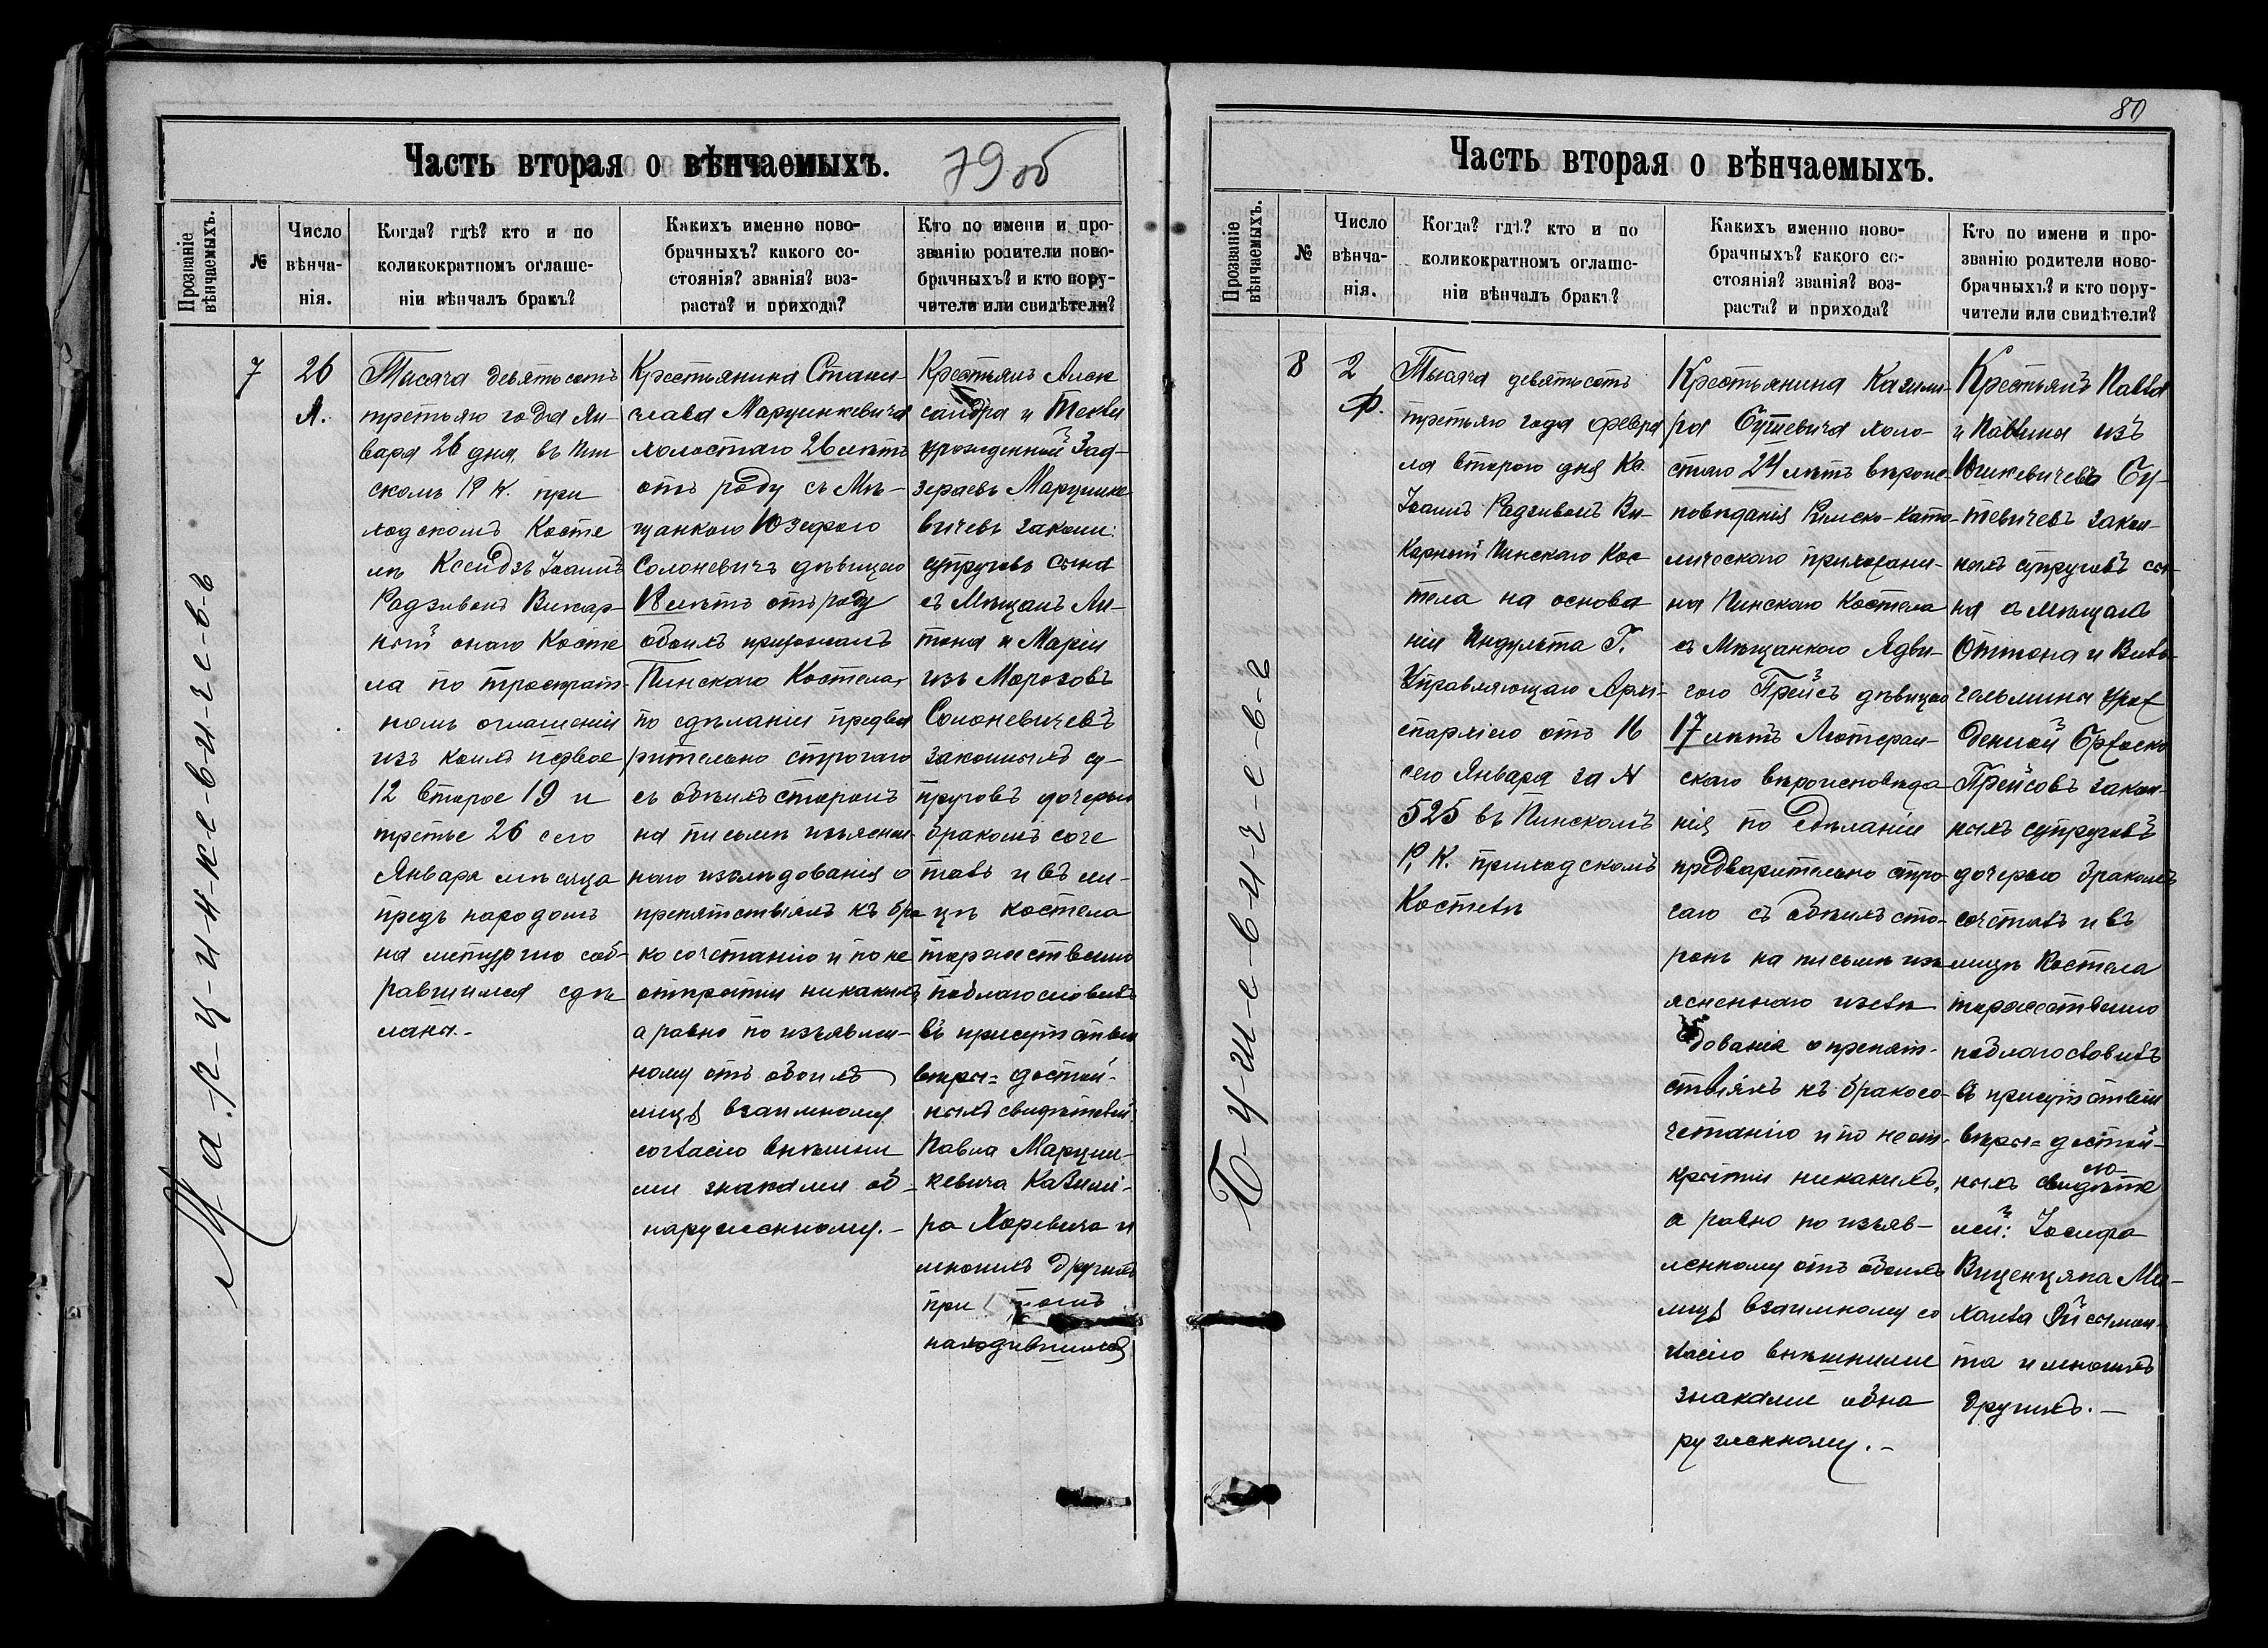 80
Часть вторая о вѣнчаемыхъ.
79 об
Прозваніе вѣнчаемыхъ.
№
Число вѣнча-
нія.
Когда? гдѣ? кто и по
коликократномъ оглаше-
ніи вѣнчалъ бракъ?
Какихъ именно ново-
брачныхъ? какого со-
стоянія? званія? воз-
раста? и прихода?
Кто по имени и про-
званію родители ново-
брачныхъ? и кто пору-
чители или свидѣтели?
М-а-р-ц-и-н-к-е-в-и-ч-е-в-ъ
7
26
Я.
Тысяча девятьсотъ
третьяго года Ян-
варя 26 дня, въ Пин
скомъ Р К. при
ходскомъ Косте
лѣ Ксендзъ Іоаннъ
Радзивонъ Викар-
ный онаго Косте
ла по троекрат-
номъ оглашеніи
изъ коихъ первое
12 второе 19 и
третье 26 сего
Января мѣсяца
предъ народомъ
на литургію соб-
равшимся сдѣ
ланы.-
Крестьянина Стани-
слава Марцинкевича
холостаго 26 лѣтъ
отъ роду съ Мѣ-
щанкою Юзефою
Солоневичъ дѣвицею
18 лѣтъ отъ роду
обоихъ прихожанъ
Пинскаго Костела,
по сдѣланіи предва
рительно строгаго
съ обѣихъ сторонъ
на письмѣ изъяснен-
наго изслѣдованія о
препятствіяхъ къ бра
косочетанію и по не
открытіи никакихъ
а равно по изъявлен-
ному отъ обоихъ
лицъ взаимному
согласію внѣшни
ми знаками об-
наруженному.-
Крестьянъ Алек
сандра и Текли
урожденной Зад-
зераевъ Марцинке
вичевъ законн:
супруговъ сына
съ Мѣщанъ Ан-
тона и Маріи
изъ Морозовъ
Солоневичевъ
законныхъ су-
пруговъ дочерью
бракомъ соче
талъ и въ ли-
цѣ костела
торжественно
поблагословилъ
въ присутствіи
вѣры=достой-
ныхъ свидѣтелей:
Павла Марцин-
кевича Казими-
ра Хоревича и
многихъ другихъ
при томъ
находившихся
Часть вторая о вѣнчаемыхъ.
Прозваніе вѣнчаемыхъ.
№
Число вѣнча-
нія.
Когда? гдѣ? кто и по
коликократномъ оглаше-
ніи вѣнчалъ бракъ?
Какихъ именно ново-
брачныхъ? какого со-
стоянія? званія? воз-
раста? и прихода?
Кто по имени и про-
званію родители ново-
брачныхъ? и кто пору-
чители или свидѣтели?
Б-у-ш-е-в-и-ч-е-в-ъ
8
2
Ф.
Тысяча девятьсотъ
третьяго года Февра
ля второго дня Кс.
Іоаннъ Радзивонъ Ви-
карный Пинскаго Кос-
тела на основа
ніи Индульта Г.
Управляющаго Архі-
епархіею отъ 16
сего Января за N
525 въ Пинскомъ
Р, К. приходскомъ
Костелѣ
Крестьянина Казими-
ра Бушевича холо-
стаго 24 лѣтъ вѣроис-
повѣданія Римско-Като-
лическаго прихожани-
на Пинскаго Костела
съ Мѣщанкою Ядви-
гою Прейсъ дѣвицею
17 лѣтъ Лютеран-
скаго вѣроисповѣда
нія по сдѣланіи
предварительно стро-
гаго съ обѣихъ сто-
ронъ на письмѣ изъ
ясненнаго изслѣ
дованія о препят-
ствіяхъ къ бракосо-
четанію и по неот-
крытіи никакихъ,
а равно по изъяв-
ленному отъ обоихъ
лицъ взаимному со
гласію внѣшними
знаками обна
руженному.-
Крестьянъ Павла
и Павлины изъ
Юшкевичевъ Бу-
шевичевъ закон-
ныхъ супруговъ сы-
на съ мѣщанъ
Оттона и Виль-
гельмины урож
денной
Прейсовъ закон-
ныхъ супруговъ
дочерью бракомъ
сочеталъ и въ
лицѣ Костела
торжественно
поблагословилъ
въ присутствіи
вѣры=достой-
ныхъ свидѣте
лей: Іосифа
Виценцяка Ми-
хаила
та и многихъ
другихъ.-